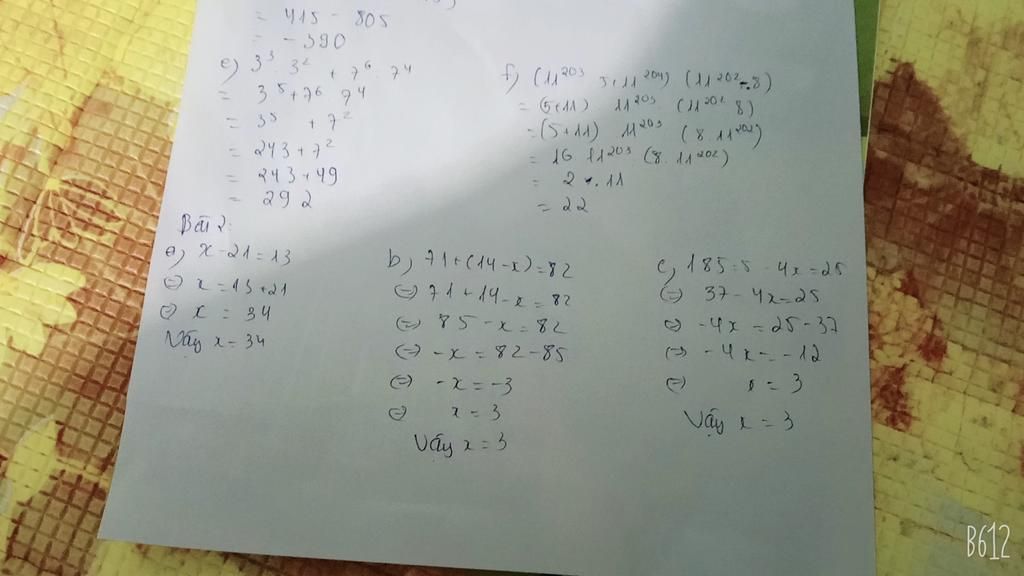 = 415 - 805
= - 390
e) 3³ . 3² + 7⁶ : 7⁴
= 3⁵ + 7⁶ : 7⁴
= 3⁵ + 7²
= 243 + 7²
= 243 + 49
= 292
f) (11²⁰³ . 5 + 11²⁰⁴) : (11²⁰² . 8)
= (5+11) 11²⁰³ : (11²⁰² . 8)
= (5+11) 11²⁰³ : (8 . 11²⁰²)
= 16 . 11²⁰³ : (8 . 11²⁰²)
= 2 . 11
= 22
Bài 2:
a) x - 21 = 13
⇔ x = 13 + 21
⇔ x = 34
Vậy x = 34
b) 71 + (14 - x) = 82
⇔ 71 + 14 - x = 82
⇔ 85 - x = 82
⇔ -x = 82 - 85
⇔ -x = -3
⇔ x = 3
Vậy x = 3
c) 185 : 5 - 4x = 25
⇔ 37 - 4x = 25
⇔ -4x = 25 - 37
⇔ -4x = -12
⇔ x = 3
Vậy x = 3
B612